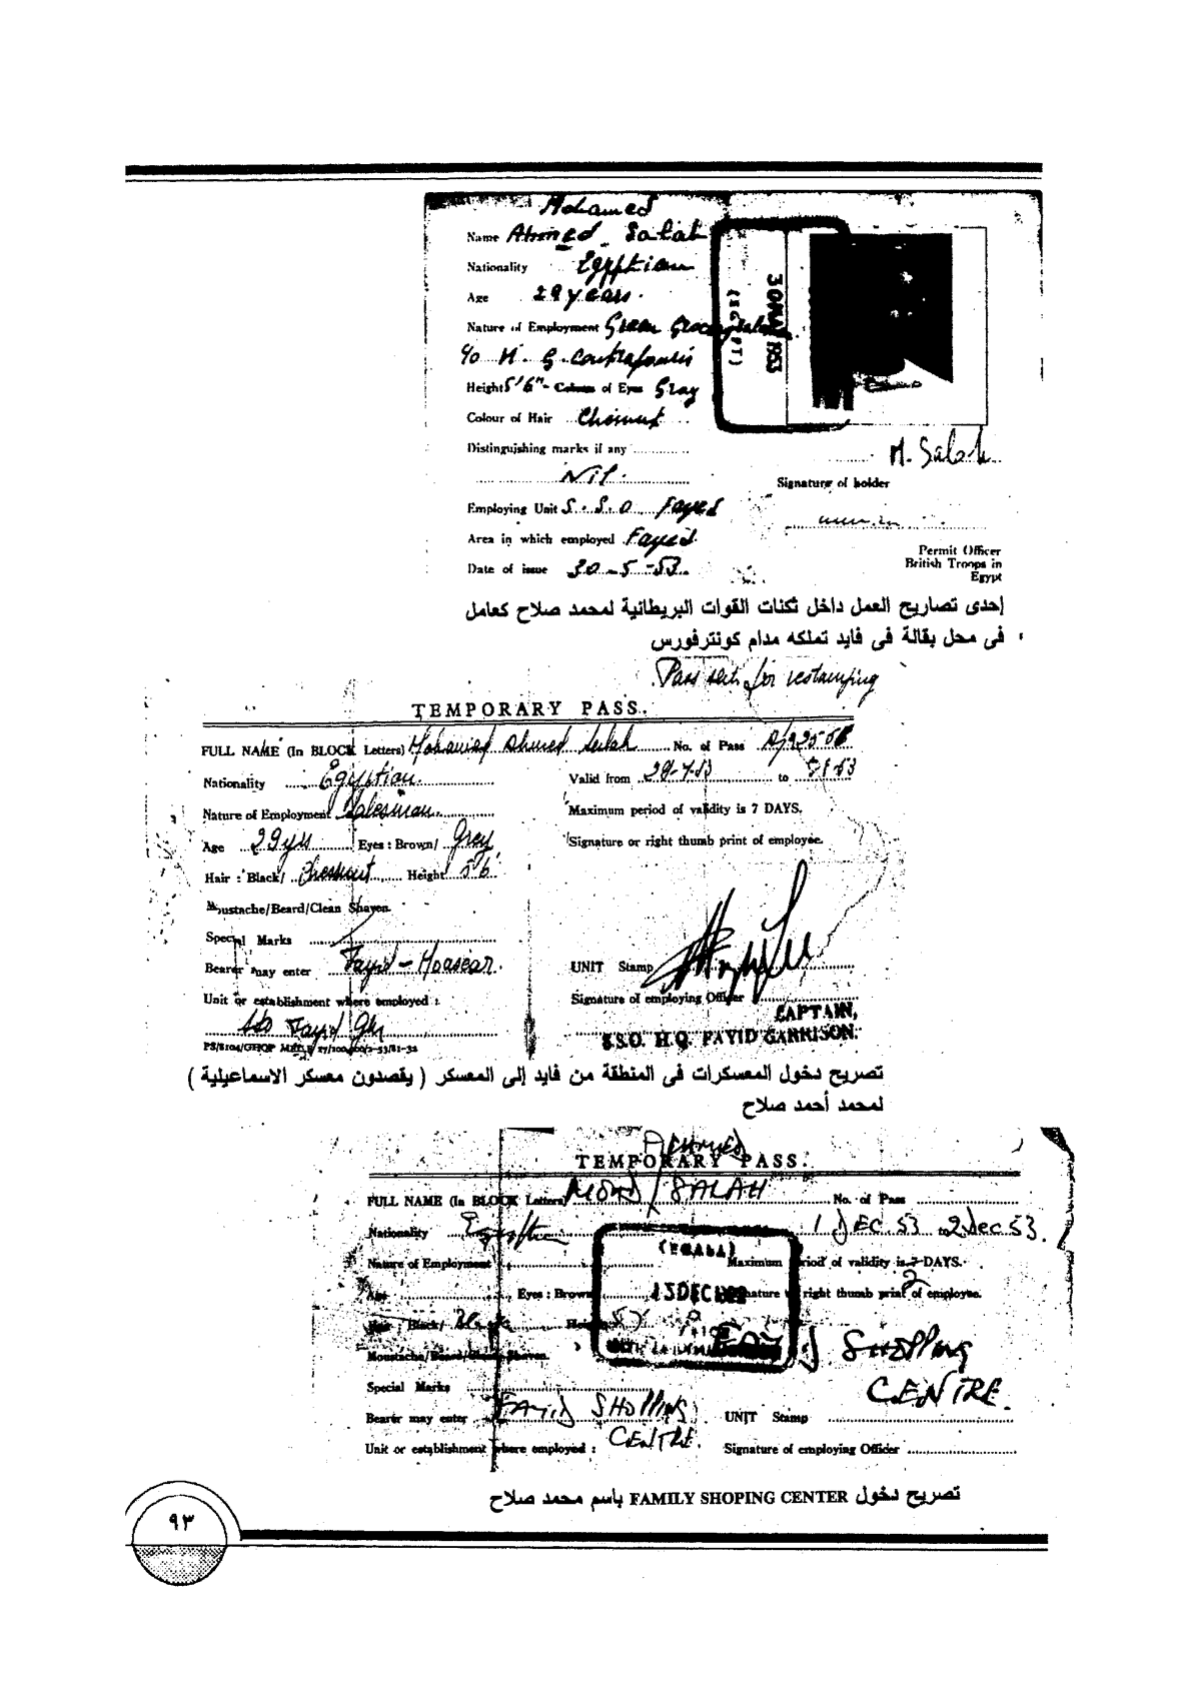 Mohamed
Name Ahmed Salah
Nationality Egyptian
Age 29 years.
Nature of Employment Green
c/o M. G.
Height 5'6" - Colour of Eyes Gray
Colour of Hair Chesnut
Distinguishing marks if any
Nil.
Employing Unit S.S.O Fayed
Area in which employed Fayed.
Date of issue 30-5-53.
30 MAY 1953
(EGYPT)
M. Salah
Signature of holder
Permit Officer
British Troops in
Egypt
إحدى تصاريح العمل داخل ثكنات القوات البريطانية لمحمد صلاح كعامل
فى محل بقالة فى فايد تملكه مدام كونترفورس
Pass sent for restamping
TEMPORARY PASS.
FULL NAME (In BLOCK Letters) Mohamed Ahmed Salah No. of Pass
Nationality Egyptian. Valid from to
Nature of Employment Salesman Maximum period of validity is 7 DAYS.
Age 29 yrs Eyes: Brown/ Grey Signature or right thumb print of employee.
Hair: Black/ Chesnut Height 5'6"
Moustache/Beard/Clean Shaven.
Special Marks
Bearer may enter Fayid - Moascar. UNIT Stamp
Unit or establishment where employed: Signature of employing Officer
Fayid CAPTAIN,
S.S.O. H.Q. FAYID GARRISON.
تصريح دخول المعسكرات فى المنطقة من فايد إلى المعسكر ( يقصدون معسكر الاسماعيلية )
لمحمد أحمد صلاح
AHMED
TEMPORARY PASS.
FULL NAME (In BLOCK Letters) MOHD / SALAH No. of Pass
Nationality Egyptian 1 DEC. 53 2 Dec 53.
Nature of Employment Maximum period of validity is 7 DAYS.
2
Age Eyes: Brown Signature right thumb print of employee.
Hair: Black/ Height
Moustache/Beard/Clean Shaven. SHOPPING
Special Marks CENTRE.
Bearer may enter FAYID SHOPPING UNIT Stamp
Unit or establishment where employed: CENTRE. Signature of employing Officer
تصريح دخول FAMILY SHOPING CENTER باسم محمد صلاح
٩٣